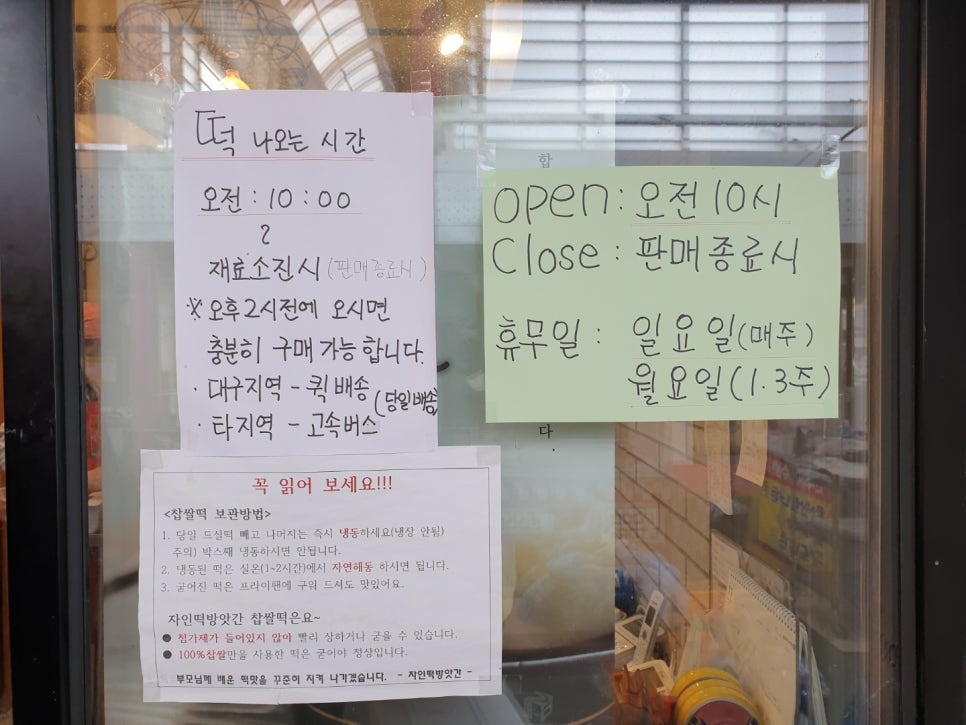 떡 나오는 시간
오전 : 10 : 00
~
재료소진시 (판매종료시)
※ 오후 2시전에 오시면
충분히 구매 가능합니다.
· 대구지역 - 퀵배송
· 타지역 - 고속버스
(당일배송)
합
다
open : 오전 10시
Close : 판매종료시
휴무일 : 일요일(매주)
월요일(1.3주)
꼭 읽어 보세요!!!
<찹쌀떡 보관방법>
1. 당일 드실떡 빼고 나머지는 즉시 냉동하세요(냉장 안됨)
주의) 박스째 냉동하시면 안됩니다.
2. 냉동된 떡은 실온(1~2시간)에서 자연해동 하시면 됩니다.
3. 굳어진 떡은 프라이팬에 구워 드셔도 맛있어요.
자인떡방앗간 찹쌀떡은요~
● 첨가제가 들어있지 않아 빨리 상하거나 굳을 수 있습니다.
● 100%찹쌀만을 사용한 떡은 굳어야 정상입니다.
부모님께 배운 떡맛을 꾸준히 지켜 나가겠습니다. - 자인떡방앗간 -